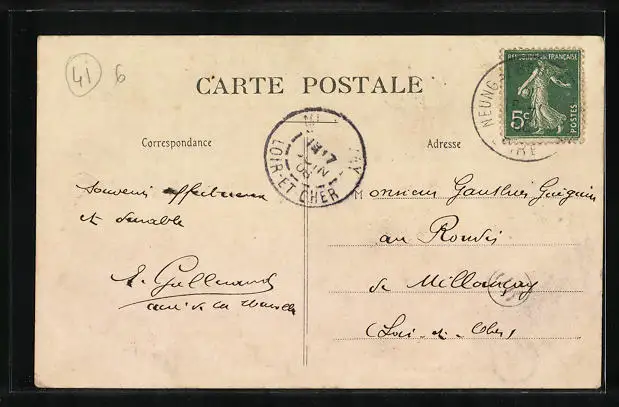 41 6
CARTE POSTALE
RÉPUBLIQUE FRANÇAISE
5c
POSTES
NEUNG
Correspondance
Adresse
LOIR-ET-CHER
JUIN
08
souvenir affectueux
et durable
Monsieur Gauthier
au Rondis
de Millançay
Loir-et-Cher
curé de la